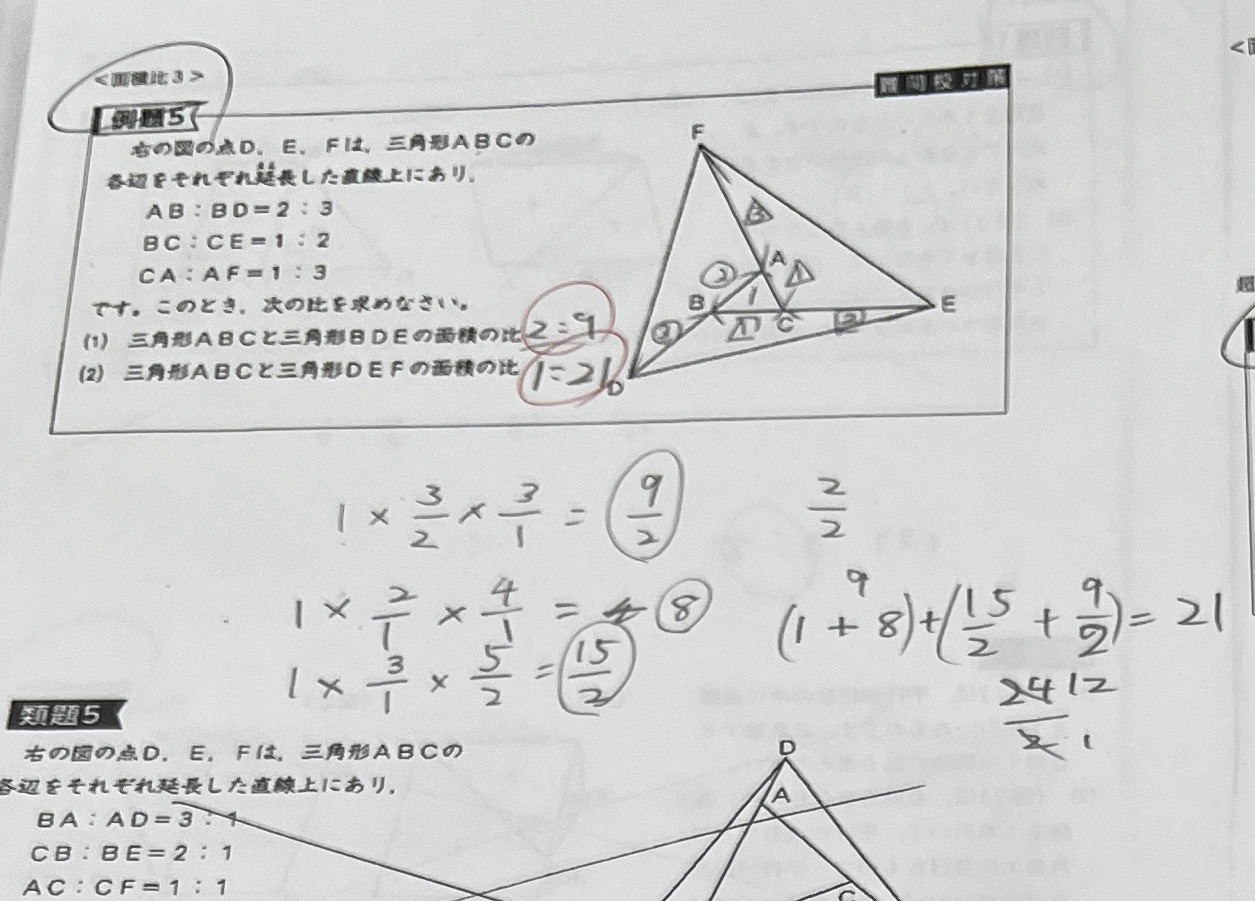 <面積比3>
難関校対策
例題5
右の図の点D，E，Fは，三角形ABCの
各辺をそれぞれ延長した直線上にあり，
AB：BD=2：3
BC：CE=1：2
CA：AF=1：3
です。このとき，次の比を求めなさい。
(1) 三角形ABCと三角形BDEの面積の比 2:9
(2) 三角形ABCと三角形DEFの面積の比 1:21
F
3
A
② 1
B 1 C E
③ 1 2
D
1 × 3/2 × 3/1 = 9/2
2/2
1 × 2/1 × 4/1 = 8
9
(1+8)+(15/2+9/2)=21
1 × 3/1 × 5/2 = 15/2
24 12
2 1
類題5
右の図の点D，E，Fは，三角形ABCの
各辺をそれぞれ延長した直線上にあり，
BA：AD=3：1
CB：BE=2：1
AC：CF=1：1
D
A
C